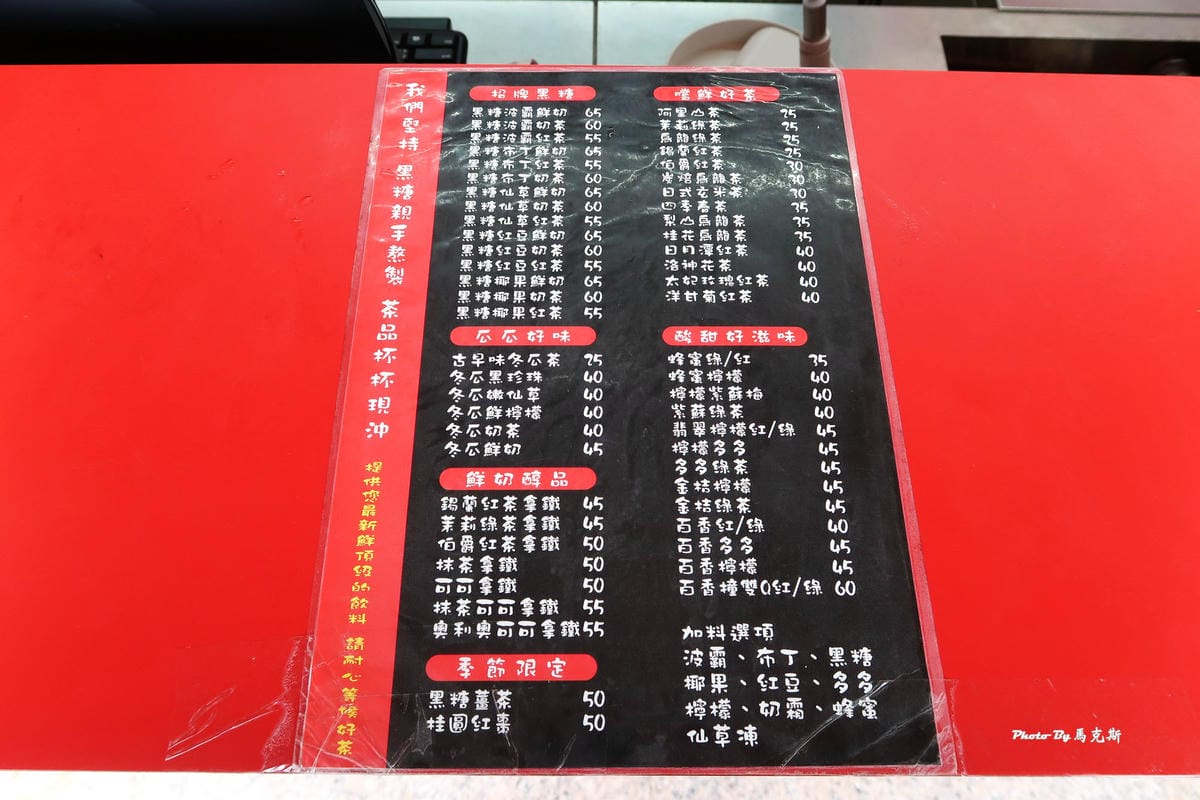 我們堅持 黑糖親手熬製 茶品杯杯現沖
提供您最新鮮頂級的飲料 請耐心等候好茶
招牌黑糖
黑糖波霸鮮奶 65
黑糖波霸奶茶 60
黑糖波霸紅茶 55
黑糖布丁鮮奶 65
黑糖布丁紅茶 55
黑糖布丁奶茶 60
黑糖仙草鮮奶 65
黑糖仙草奶茶 60
黑糖仙草紅茶 55
黑糖紅豆鮮奶 65
黑糖紅豆奶茶 60
黑糖紅豆紅茶 55
黑糖椰果鮮奶 65
黑糖椰果奶茶 60
黑糖椰果紅茶 55
瓜瓜好味
古早味冬瓜茶 25
冬瓜黑珍珠 40
冬瓜嫩仙草 40
冬瓜鮮檸檬 40
冬瓜奶茶 40
冬瓜鮮奶 45
鮮奶醇品
錫蘭紅茶拿鐵 45
茉莉綠茶拿鐵 45
伯爵紅茶拿鐵 50
抹茶拿鐵 50
可可拿鐵 50
抹茶可可拿鐵 55
奧利奧可可拿鐵 55
季節限定
黑糖薑茶 50
桂圓紅棗 50
嚐鮮好茶
阿里山茶 25
茉莉綠茶 25
烏龍綠茶 25
錫蘭紅茶 25
伯爵紅茶 30
炭焙烏龍茶 30
日式玄米茶 30
四季春茶 35
梨山烏龍茶 35
桂花烏龍茶 35
日月潭紅茶 40
洛神花茶 40
太妃玫瑰紅茶 40
洋甘菊紅茶 40
酸甜好滋味
蜂蜜綠/紅 35
蜂蜜檸檬 40
檸檬紫蘇梅 40
紫蘇綠茶 40
翡翠檸檬紅/綠 45
檸檬多多 45
多多綠茶 45
金桔檸檬 45
金桔綠茶 45
百香紅/綠 40
百香多多 45
百香檸檬 45
百香撞雙Q紅/綠 60
加料選項
波霸、布丁、黑糖
椰果、紅豆、多多
檸檬、奶霜、蜂蜜
仙草凍
Photo By 馬克斯